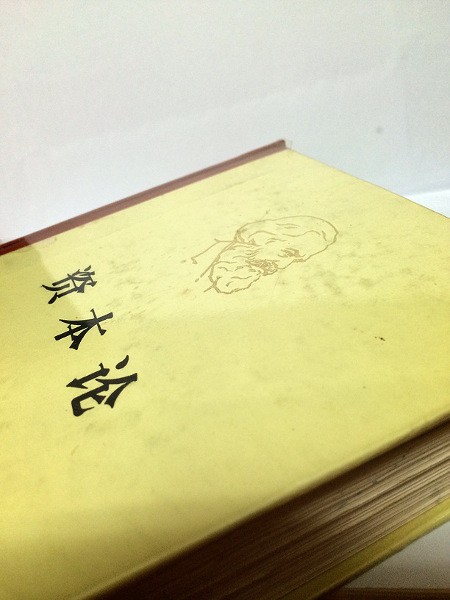 资本论